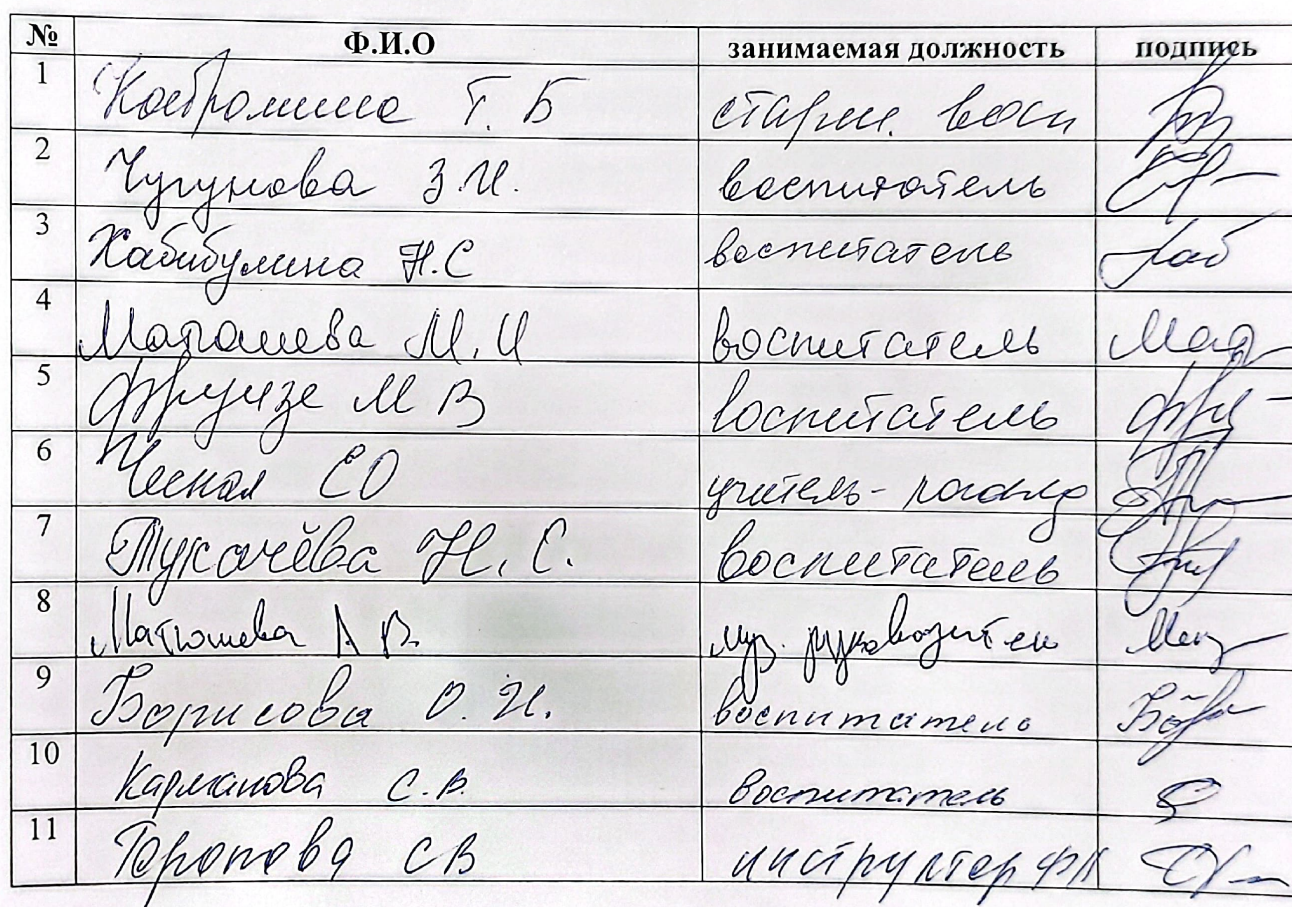 № Ф.И.О занимаемая должность подпись
1 Костромина Т. Б старш. восп
2 Чугунова З.И. воспитатель
3 Хабибулина Н.С воспитатель
4 М.И воспитатель
5 Фрунзе М В воспитатель
6 ЕО учитель-
7 Тукачёва Н. С. воспитатель
8 Матюшева А В. муз. руководител
9 Борисова О. И. воспитатель
10 Карманова С.В. воспитатель
11 Торопова СВ инструктор ФК